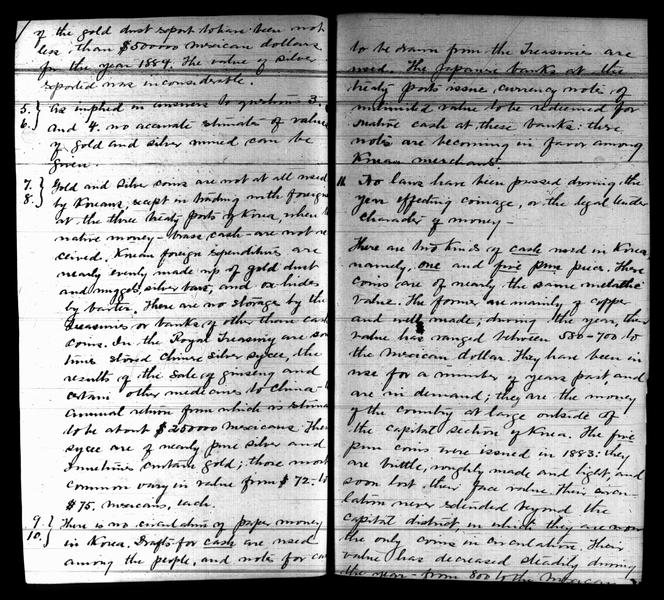 of the gold dust export to have been not
less than $500000 Mexican dollars
for the year 1884. The value of silver
exported was inconsiderable.
5. } As implied in answers to questions 3.
6. } and 4. no accurate estimates of value
of gold and silver mined can be
given.
7. } Gold and silver coins are not at all used
8. } by Koreans, except in trading with foreign
at the three treaty ports of Korea, where
native money - brass cash - are not re
ceived. Korean foreign expenditures are
nearly evenly made up of gold dust
and nuggets, silver bars, and ox-hides
by barter. There are no storage by the
Treasuries or banks of other than cash
coins. In the Royal Treasury are som
times stored Chinese silver sycee, the
results of the sale of ginseng and
certain other medicines to China -
annual return from which is estima
to be about $250000 Mexicans. These
sycee are of nearly pure silver and
sometimes contain gold; those most
common vary in value from $72- to
$75. Mexicans, each.
9. } There is no circulation of paper money
10. } in Korea. Drafts for cash are used
among the people, and notes for ca
to be drawn from the Treasuries are
used. The Japanese banks at the
treaty ports issue currency notes of
unlimited value to be redeemed for
native cash at these banks: these
notes are becoming in favor among
Korean merchants.
11. No laws have been passed during the
year effecting coinage, or the legal tender
character of money -
There are two kinds of cash used in Korea,
namely, one and five pun pieces. These
coins are of nearly the same metallic
value. The former are mainly of copper
and well made; during the year, their
value has ranged between 550-700 to
the Mexican dollar. They have been in
use for a number of years past, and
are in demand; they are the money
of the country at large outside of
the capital section of Korea. The five
pun coins were issued in 1883: they
are brittle, roughly made and light, and
soon lost their face value. Their circu-
lation never extended beyond the
capital district, in which they are now
the only coins in circulation. Their
value has decreased steadily during
the year - from 800 to the Mexican